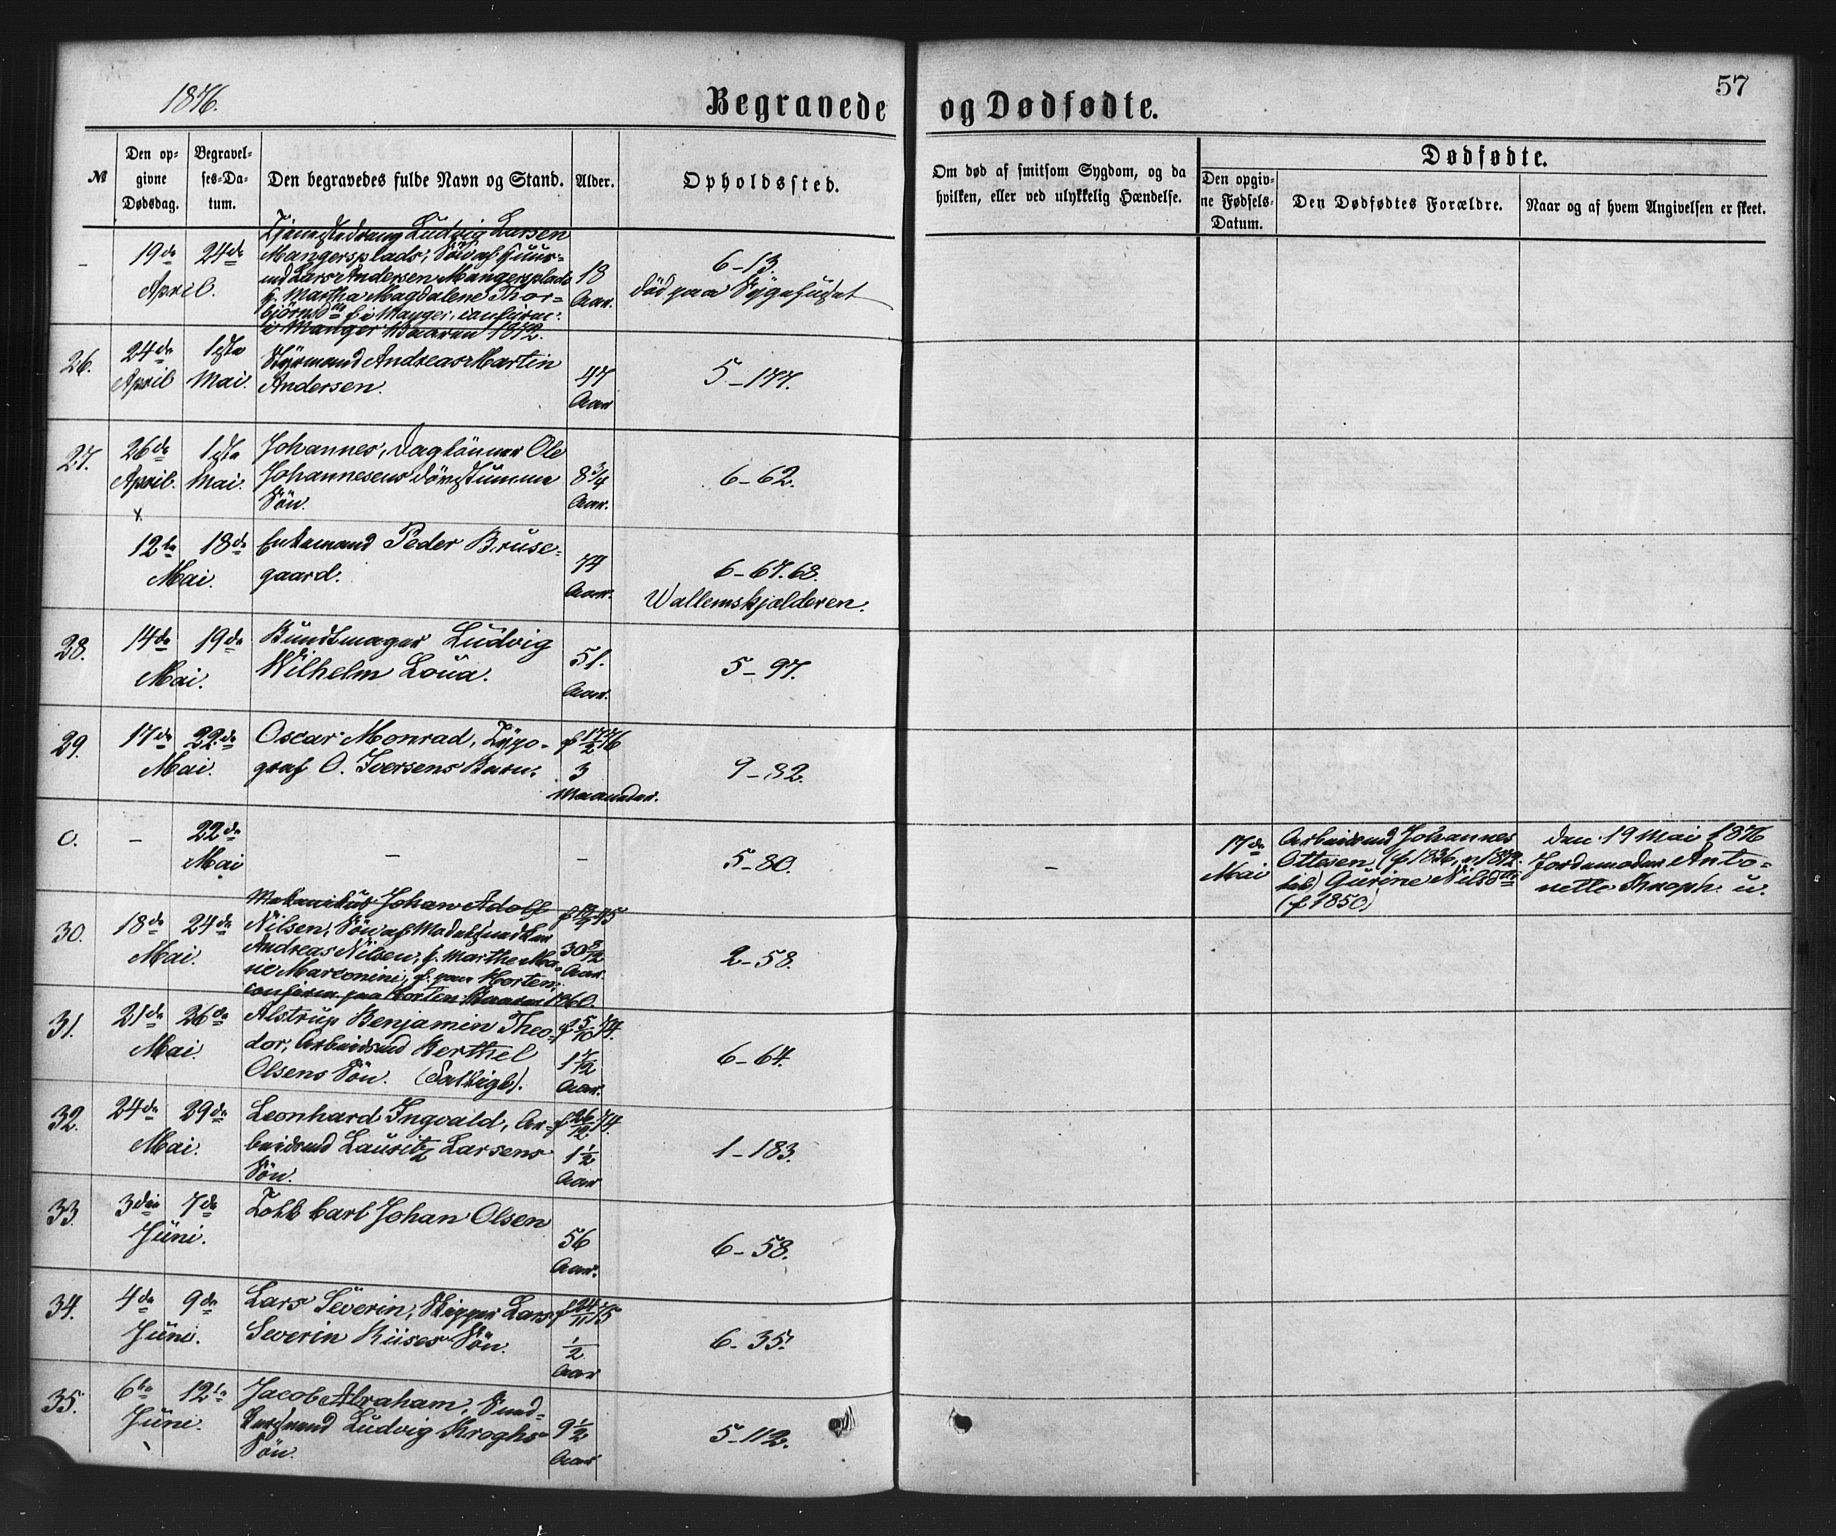 1876.
Begravede og Dødfødte.
57
№
Den op-
givne
Dødsdag.
Begravel-
ses-Da-
tum.
Den begravedes fulde Navn og Stand.
Alder.
Opholdssted.
Om død af smitsom Sygdom, og da
hvilken, eller ved ulykkelig Hændelse.
Dødfødte.
Den opgiv-
ne Fødsels-
Datum.
Den Dødfødtes Forældre.
Naar og af hvem Angivelsen er skeet.
– 19de 24de
April.
Tjenestedreng Ludvig Larsen
Mangersplads, Søn af Huus-
md Lars Andersen Mangersplads
f. Martha Magdalene Thor-
björnsd. f. i Manger, confirm.
i Manger Vaaren 1872.
18
Aar.
6–13.
död paa Sygehuset
26.
24de
April
1ste
Mai.
Styrmand Andreas Martin
Andersen.
47
Aar
5–177.
27.
26de
April.
1ste
Mai.
Johannes, Daglönner Ole
Johannesens dövstumme
Sön.
8 3/4
Aar.
6–62.
x.
12te 18de
Mai.
Enkemand Peder Bruse-
gaard.
74
Aar.
6–67.68.
Wallemskjælderen.
28.
14de 19de
Mai.
Bundtmager Ludvig
Wilhelm Loua.
51.
Aar.
5–97.
29.
17de 22de
Mai.
Oscar Monrad, Typo-
graf O. Iversens Barn.
f 17/2 76
3
Maaneder.
9–32.
0.
–
22de
Mai
–
–
5–80.
–
17de
Mai
Arbeidsmd Johannes
Ottesen (f. 1836, 1872
Gurine Nilsd.
(f. 1850)
den 19 Mai 1876
Jordemoder Anto-
nette Knoph.
30.
18de 24de
Mai.
Mekanikus Johan Adolf
Nilsen, Søn af
Andreas Nilsen, f. Marthe Ma-
rie f. paa Horten,
confirm. paa Horten Vaaren 1860.
30 8/12
Aar.
2–58.
31.
21de 26de
Mai
Alstrup Benjamin Theo-
dor, Arbeidsmd Berthel
Olsens Sön. (Fattigl.).
f 5/10 74.
1 7/12
Aar.
6–64.
32.
24de 29de
Mai.
Leonhard Ingvald, Ar-
beidsmd Lauritz Larsens
Sön.
f 26/12 74.
1 1/2
Aar
1–183.
33.
3die 7de
Juni.
Carl Johan Olsen
56
Aar.
6–58.
34.
4de 9de
Juni.
Lars Severin, Skipper Lars
Severin Riises Sön.
f 24/11 75
1/2
Aar
6–35.
35.
6te 12te
Juni.
Jacob Abraham,
Ludvig Kroghs
Sön.
9 1/2
Aar
5–112.